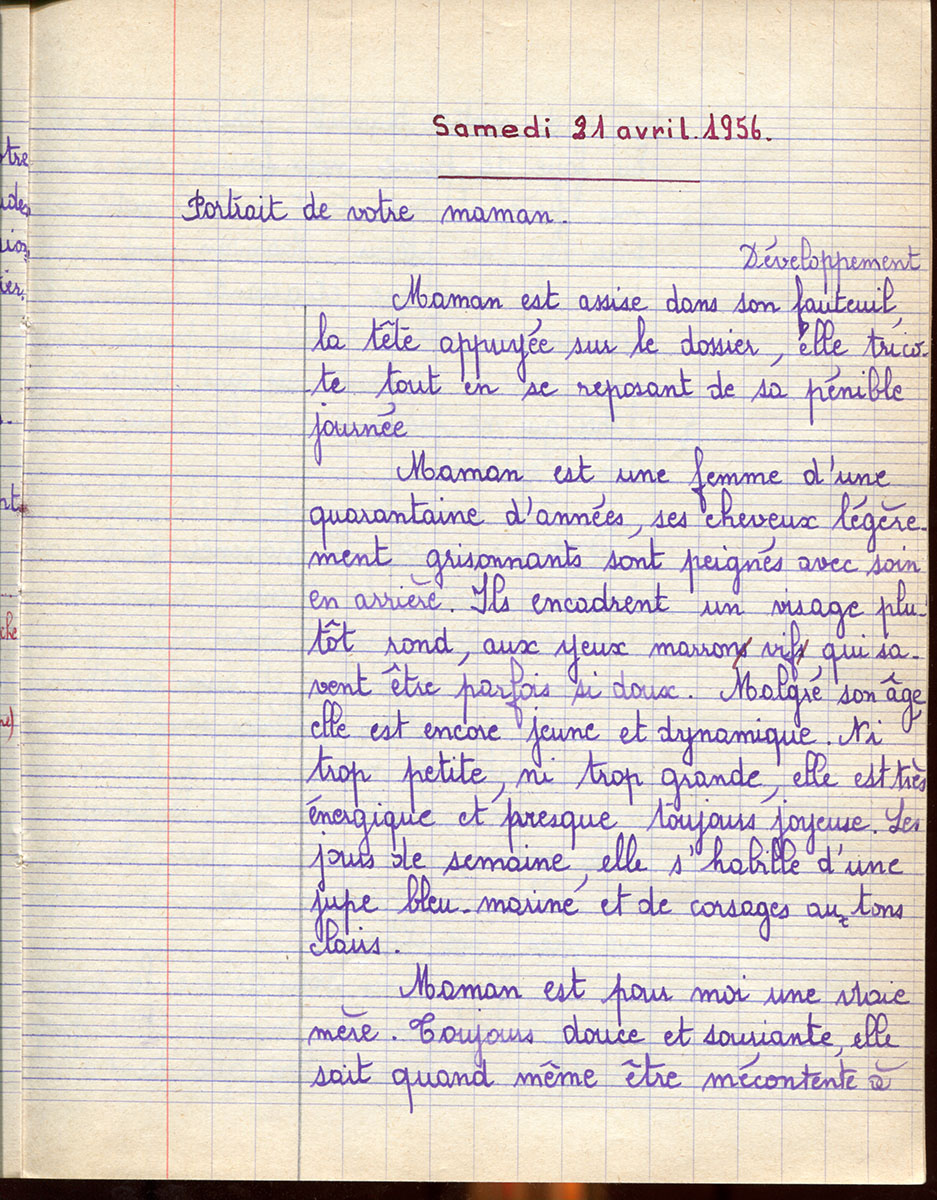 Samedi 21 avril.1956.
Portrait de votre maman.
Développement
Maman est assise dans son fauteuil,
la tête appuyée sur le dossier, elle trico-
te tout en se reposant de sa pénible
journée
Maman est une femme d'une
quarantaine d'années, ses cheveux légère-
ment grisonnants sont peignés avec soin
en arrière. Ils encadrent un visage plu-
tôt rond, aux yeux marrons vifs, qui sa-
vent être parfois si doux. Malgré son âge
elle est encore jeune et dynamique. Ni
trop petite, ni trop grande, elle est très
énergique et presque toujours joyeuse. Les
jours de semaine, elle s'habille d'une
jupe bleu-marine et de corsages aux tons
clairs.
Maman est pour moi une vraie
mère. Toujours douce et souriante, elle
sait quand même être mécontente à